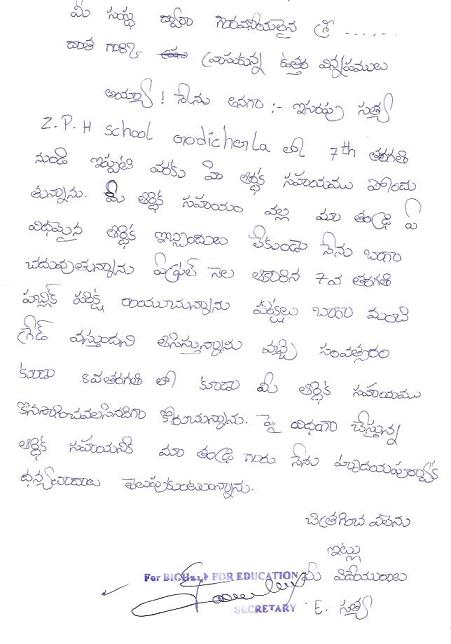 మీ సంస్థ ద్వారా గౌరవనీయులైన శ్రీ ......
దాత గారికి వ్రాసుకున్న ఉత్తర విన్నపములు
అయ్యా! నేను అనగా :- ఇనరపు సత్య
Z.P.H school modicherla లో 7th తరగతి
నుండి ఇప్పటి వరకు మీ ఆర్థిక సహాయము పొందు
తున్నాను. మీ ఆర్థిక సహాయం వల్ల మా తండ్రి ఏ
విధమైన ఆర్థిక ఇబ్బందులు లేకుండా నేను బాగా
చదువుతున్నాను ఏప్రిల్ నెల ఆఖరిన 7వ తరగతి
పబ్లిక్ పరీక్ష రాయుచున్నాను పరీక్షలు బాగా మంచి
గ్రేడ్ వస్తుందని ఆశిస్తున్నాను వచ్చే సంవత్సరం
కూడా 8వతరగతి లో కూడా మీ ఆర్థిక సహాయము
కొనసాగించవలసినదిగా కోరుచున్నాను. పై విధంగా చేస్తున్న
ఆర్థిక సహాయానికి మా తండ్రి గారు నేను హృదయపూర్వక
ధన్యవాదాలు తెలుపుకుంటున్నాను.
చిత్తగించ వలెను
ఇట్లు
For FOR EDUCATION మీ విధేయురాలు
SECRETARY E. సత్య